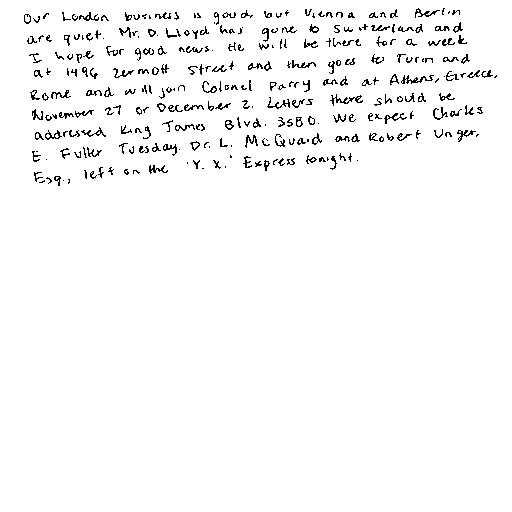 Our London business is good, but Vienna and Berlin
are quiet. Mr. D. Lloyd has gone to Switzerland and
I hope for good news. He will be there for a week
at 1496 Zermott Street and then goes to Turin and
Rome and will join Colonel Parry and at Athens, Greece,
November 27 or December 2. Letters there should be
addressed King James Blvd. 3580. We expect Charles
E. Fuller Tuesday. Dr. L. McQuaid and Robert Unger,
Esq., left on the "Y. X." Express tonight.